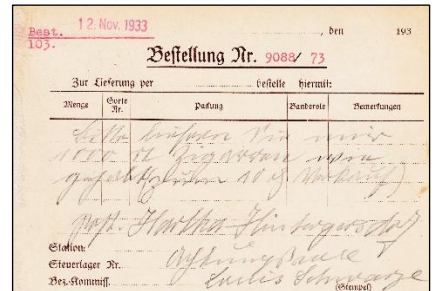 Best. 12. Nov. 1933 , den 193
103.
Bestellung Nr. 9088/ 73
Zur Lieferung per bestelle hiermit:
Menge Sorte Nr. Packung Banderole Bemerkungen
bitte liefern Sie mir
1000 St Zigarren wie
gehabt (zum 10 ₰ Verkauf)
Post. Hartha-Hintergersdorf
Station:
Steuerlager Nr. Achtungsvoll
Bez.-Kommiss. Louis Schwarze
(Stempel)